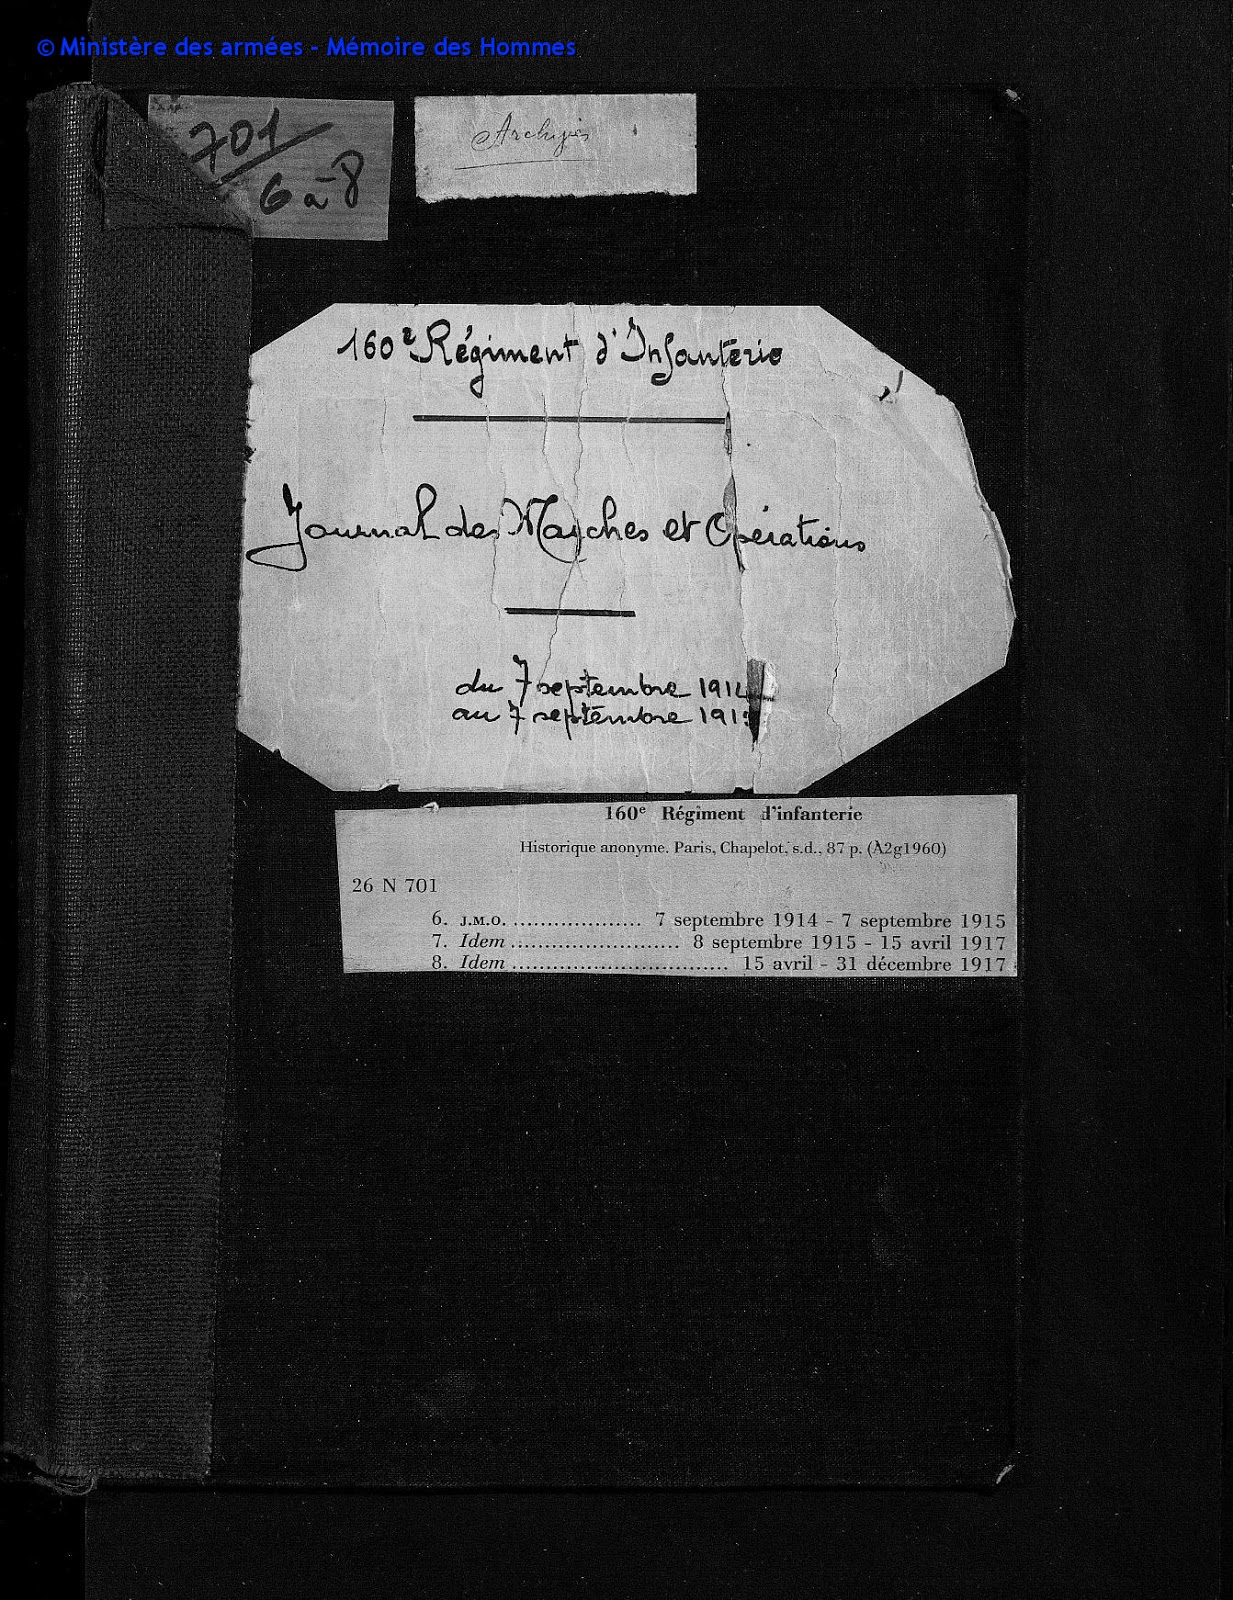 © Ministère des armées - Mémoire des Hommes
701
6 à 8
Archives
160e Régiment d'Infanterie
Journal des Marches et Opérations
du 7 septembre 1914
au 7 septembre 191
160e Régiment d'infanterie
Historique anonyme. Paris, Chapelot, s.d., 87 p. (A2g1960)
26 N 701
6. J.M.O. ................... 7 septembre 1914 - 7 septembre 1915
7. Idem ......................... 8 septembre 1915 - 15 avril 1917
8. Idem ................................ 15 avril - 31 décembre 1917